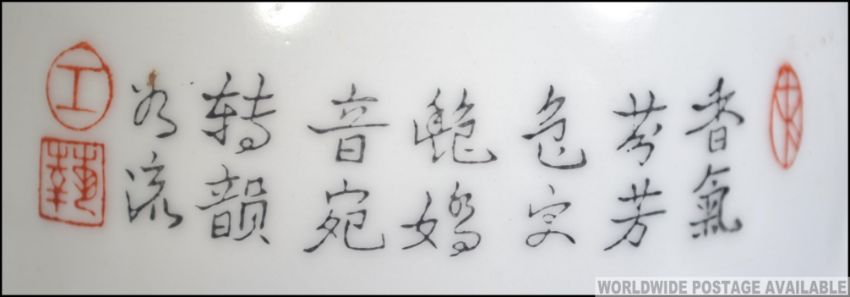 香氣
芬芳
色更
艷嬌
音宛
转韻
流
工
WORLDWIDE POSTAGE AVAILABLE